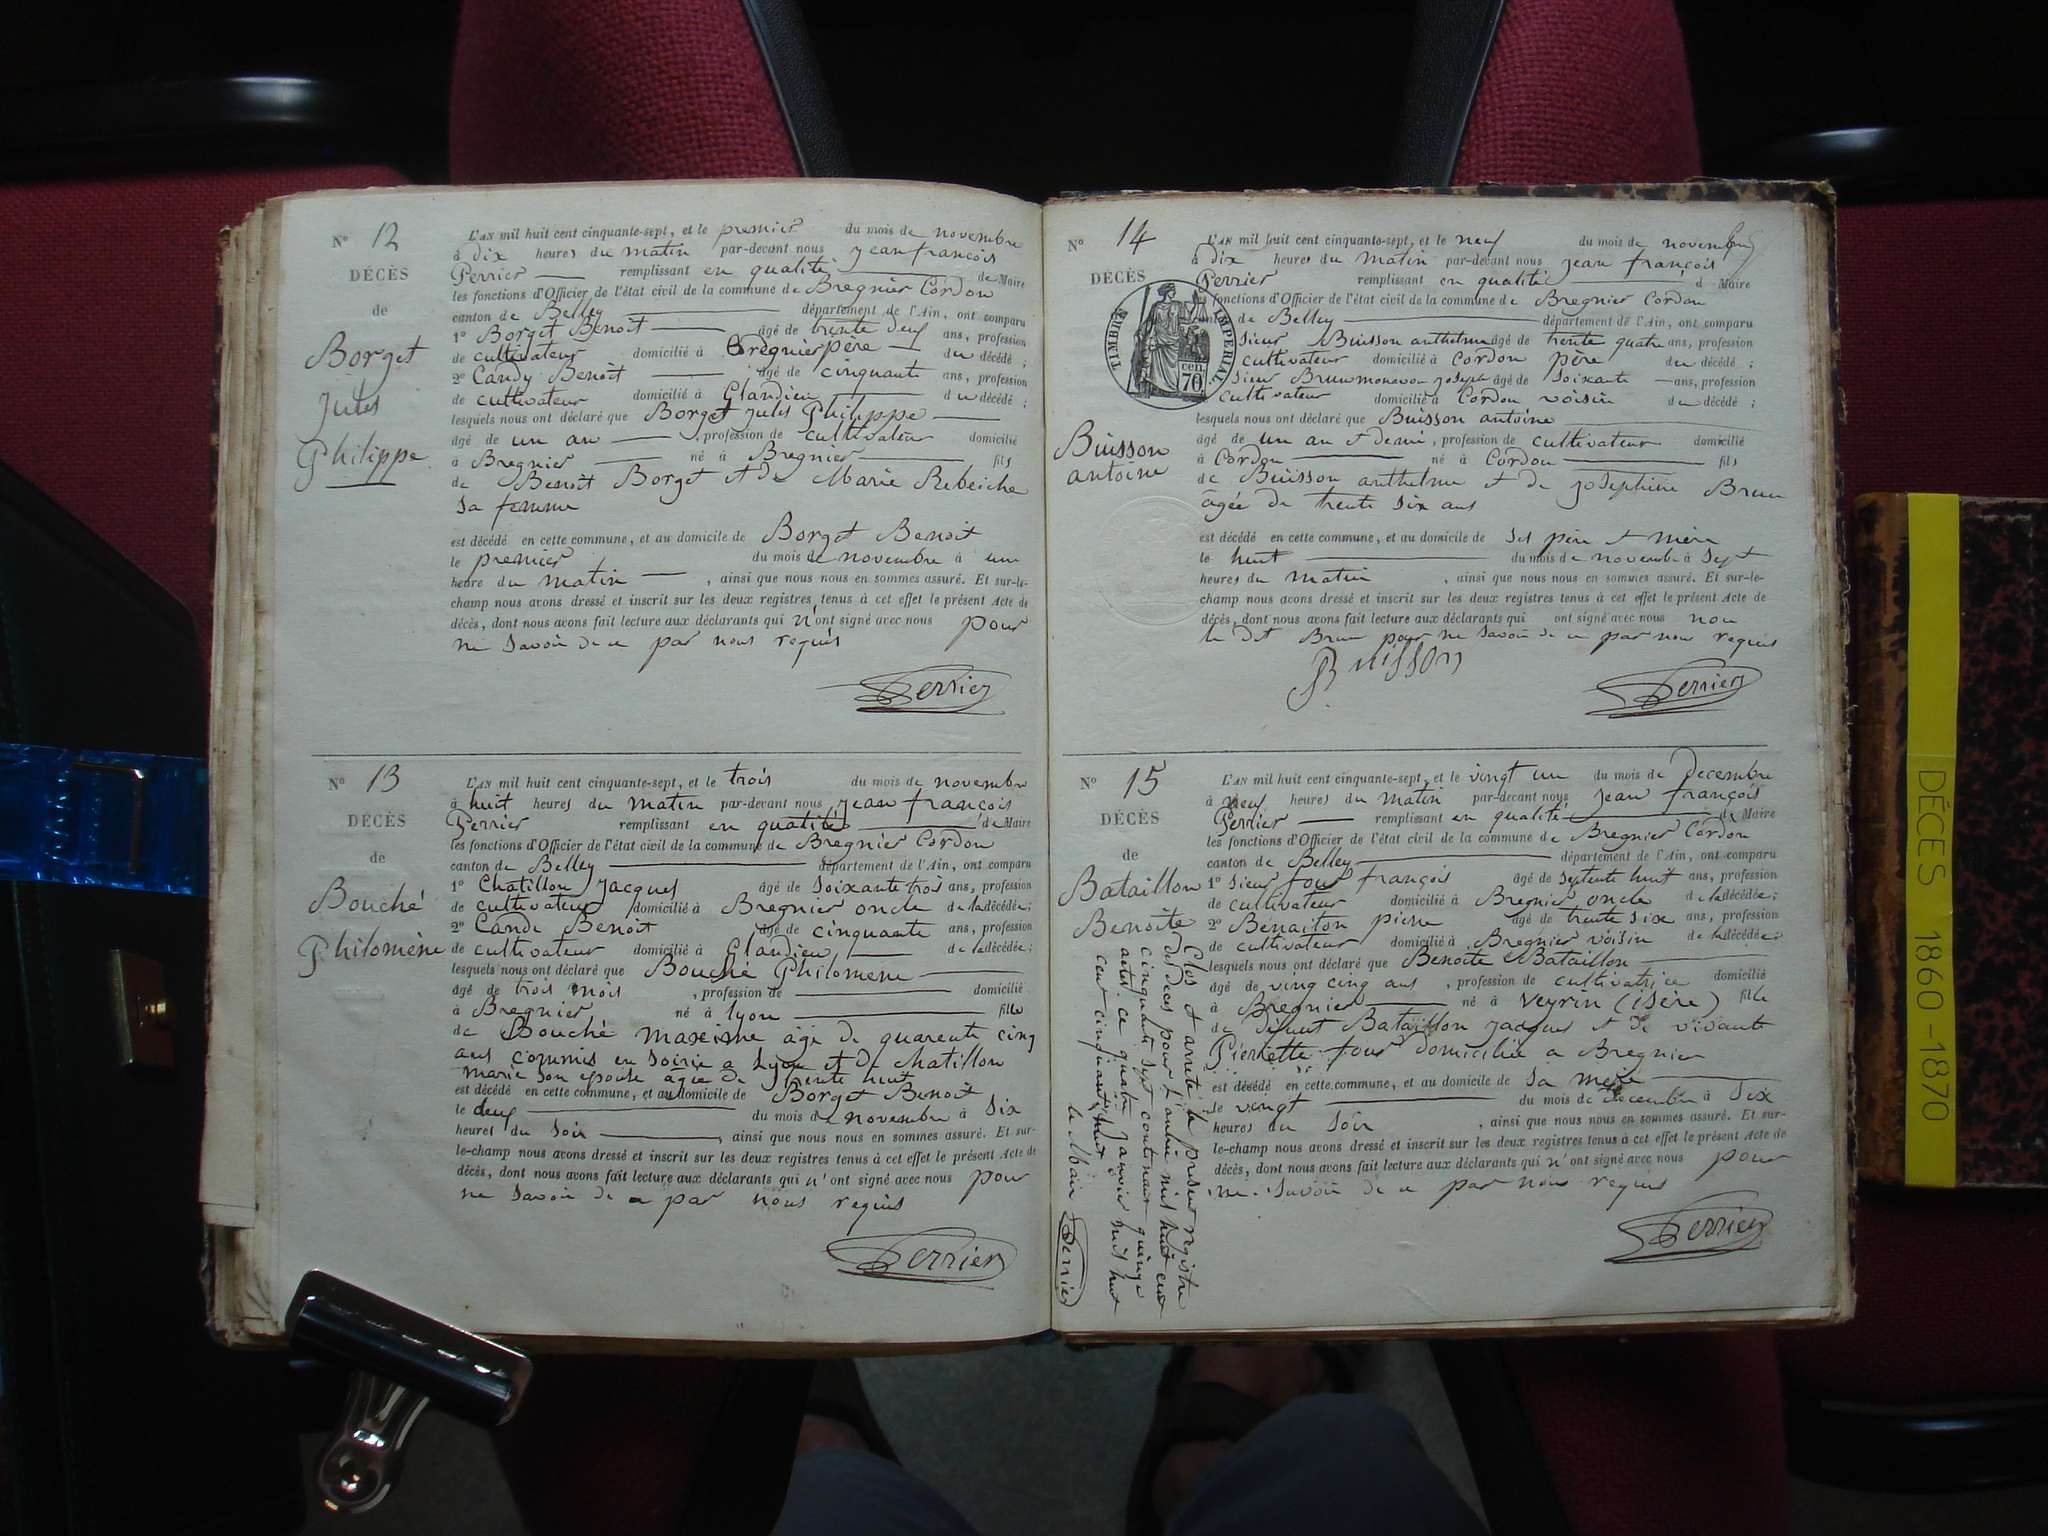 N° 12
DÉCÈS
de
Borget
Jules
Philippe
L'AN mil huit cent cinquante-sept, et le premier du mois de novembre
à dix heures du matin par-devant nous jean françois
Perrier remplissant en qualité de Maire
les fonctions d'Officier de l'état civil de la commune de Bregnier Cordon
canton de Belley département de l'Ain, ont comparu
1° Borget Benoit âgé de trente deux ans, profession
de cultivateur domicilié à Bregnier père du décédé ;
2° Candy Benoit âgé de cinquante ans, profession
de cultivateur domicilié à Glandieu du décédé ;
lesquels nous ont déclaré que Borget jules Philippe
âgé de un an , profession de cultivateur domicilié
à Bregnier né à Bregnier fils
de Benoit Borget et de Marie Rebeiche
sa femme
est décédé en cette commune, et au domicile de Borget Benoit
le premier du mois de novembre à une
heure du matin , ainsi que nous nous en sommes assuré. Et sur-le-
champ nous avons dressé et inscrit sur les deux registres tenus à cet effet le présent Acte de
décès, dont nous avons fait lecture aux déclarants qui n'ont signé avec nous pour
ne savoir de ce par nous requis
Perrier
N° 13
DÉCÈS
de
Bouché
Philomène
L'AN mil huit cent cinquante-sept, et le trois du mois de novembre
à huit heures du matin par-devant nous jean françois
Perrier remplissant en qualité de Maire
les fonctions d'Officier de l'état civil de la commune de Bregnier Cordon
canton de Belley département de l'Ain, ont comparu
1° Chatillon jacques âgé de soixante trois ans, profession
de cultivateur domicilié à Bregnier oncle de la décédée ;
2° Cande Benoit âgé de cinquante ans, profession
de cultivateur domicilié à Glandieu de la décédée ;
lesquels nous ont déclaré que Bouché Philomene
âgé de trois mois , profession de domicilié
à Bregnier né à lyon fille
de Bouché maxime âgé de quarente cinq
ans commis en soirie a Lyon et de chatillon
marie son epouse âgée de trente huit
est décédé en cette commune, et au domicile de Borget Benoit
le deux du mois de novembre à six
heures du soir , ainsi que nous nous en sommes assuré. Et sur-
le-champ nous avons dressé et inscrit sur les deux registres tenus à cet effet le présent Acte de
décès, dont nous avons fait lecture aux déclarants qui n'ont signé avec nous pour
ne savoir de ce par nous requis
Perrier
N° 14
DÉCÈS
TIMBRE IMPERIAL
70 cen.
Buisson
antoine
L'AN mil huit cent cinquante-sept, et le neuf du mois de novembre
à dix heures du matin par-devant nous jean françois
Perrier remplissant en qualité d Maire
les fonctions d'Officier de l'état civil de la commune de Bregnier Cordon
de Belley département de l'Ain, ont comparu
sieur Buisson anthelme âgé de trente quatre ans, profession
cultivateur domicilié à Cordon père du décédé ;
sieur joseph âgé de soixante ans, profession
cultivateur domicilié à Cordon voisin du décédé ;
lesquels nous ont déclaré que Buisson antoine
âgé de un an et demi , profession de cultivateur domicilié
à Cordon né à Cordon fils
de Buisson anthelme et de josephine Brun
âgée de trente six ans
est décédé en cette commune, et au domicile de ses père et mère
le huit du mois de novembre à sept
heures du matin , ainsi que nous nous en sommes assuré. Et sur-le-
champ nous avons dressé et inscrit sur les deux registres tenus à cet effet le présent Acte de
décès, dont nous avons fait lecture aux déclarants qui ont signé avec nous non
le dit Brun pour ne savoir de ce par nous requis
Buisson
Perrier
N° 15
DÉCÈS
de
Bataillon
Benoite
L'AN mil huit cent cinquante-sept, et le vingt un du mois de Decembre
à neuf heures du matin par-devant nous jean françois
Perrier remplissant en qualité de Maire
les fonctions d'Officier de l'état civil de la commune de Bregnier Cordon
canton de Belley département de l'Ain, ont comparu
1° sieur four françois âgé de septente huit ans, profession
de cultivateur domicilié à Bregnier oncle de la décédée ;
2° Benaiton pierre âgé de trente six ans, profession
de cultivateur domicilié à Bregnier voisin de la décédée ;
lesquels nous ont déclaré que Benoite Bataillon
âgé de ving cinq ans , profession de cultivatrice domicilié
à Bregnier né à Veyrin (isère) fille
de défunt Bataillon jacques et de vivante
Pierrette four domiciliée a Bregnier
est décédé en cette commune, et au domicile de sa mère
le vingt du mois de Decembre à six
heures du soir , ainsi que nous nous en sommes assuré. Et sur-
le-champ nous avons dressé et inscrit sur les deux registres tenus à cet effet le présent Acte de
décès, dont nous avons fait lecture aux déclarants qui n'ont signé avec nous pour
ne savoir de ce par nous requis
Perrier
Clos et arreté le présent registre
des décès pour l'année mil huit cent
cinquante sept contenant quinze
actes. ce quatre janvier mil huit
cent cinquante huit
le Maire Perrier
DÉCES 1860-1870